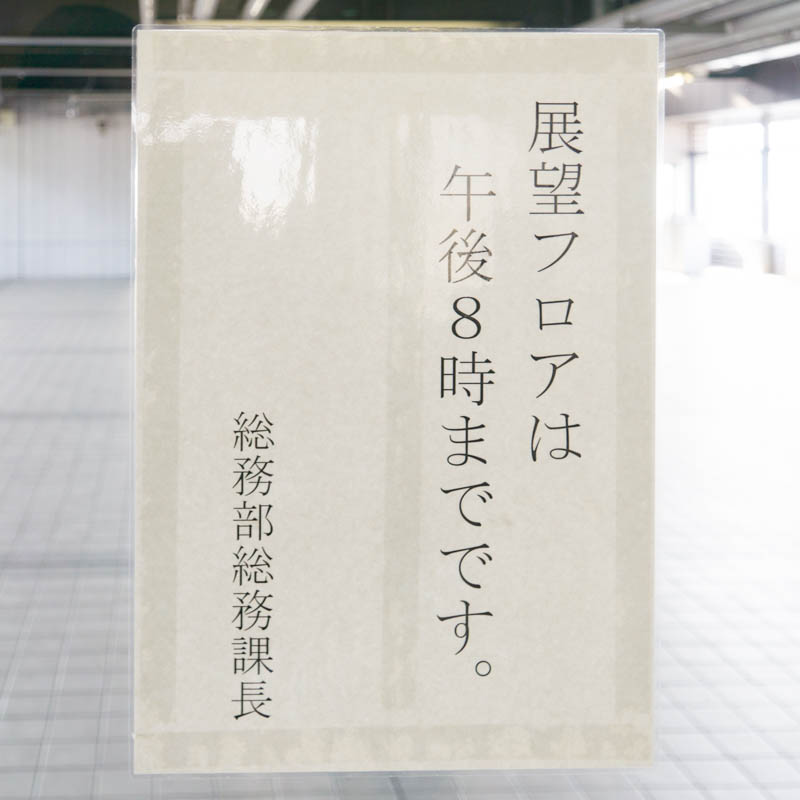 展望フロアは
午後8時までです。
総務部総務課長